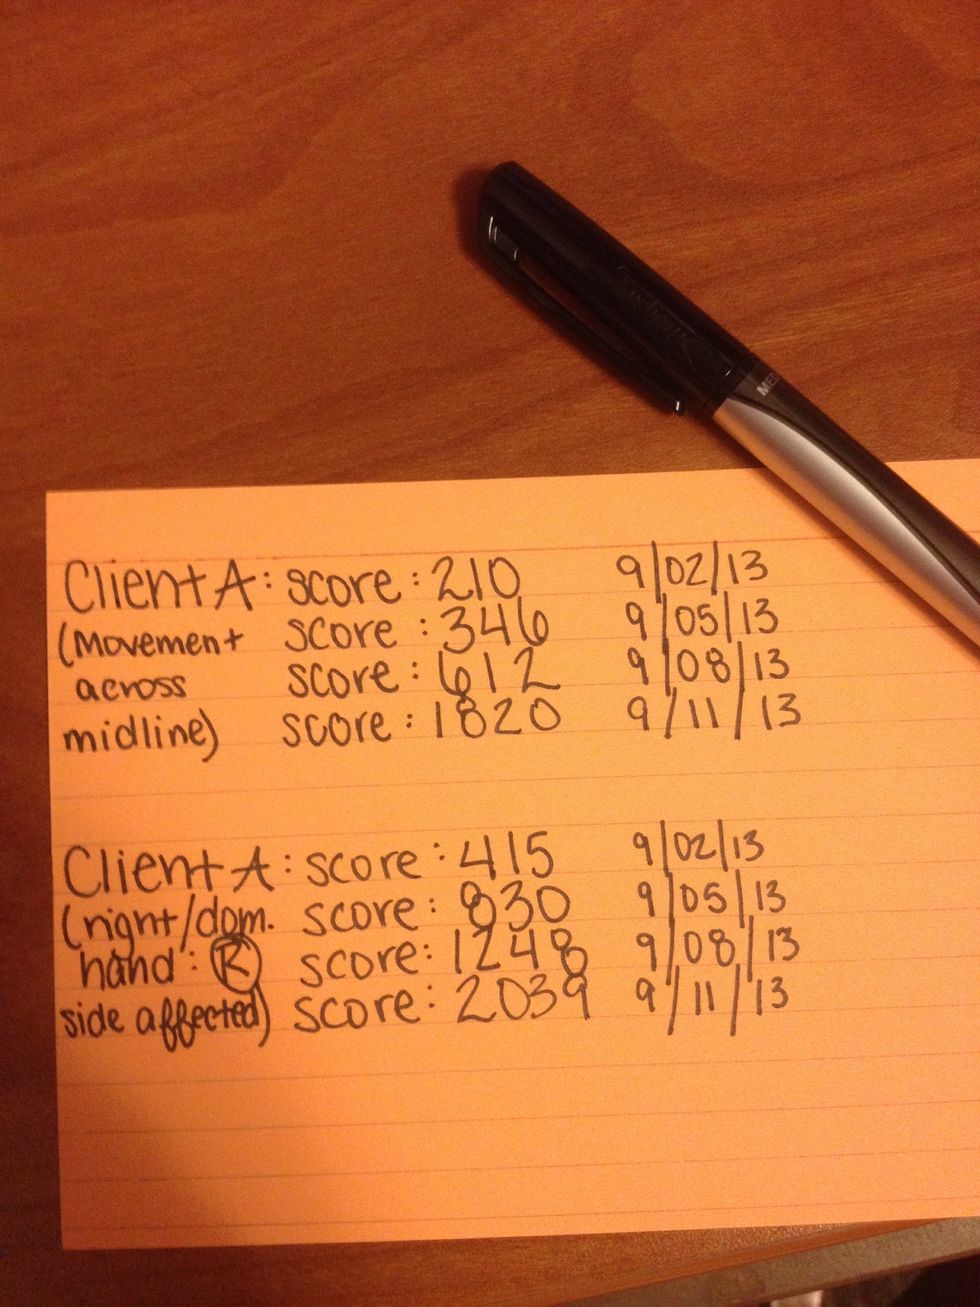 Client A: score: 210 9/02/13
(Movement score: 346 9/05/13
across score: 612 9/08/13
midline) score: 1820 9/11/13
Client A: score: 415 9/02/13
(right/dom. score: 830 9/05/13
hand: R score: 1248 9/08/13
side affected) score: 2039 9/11/13